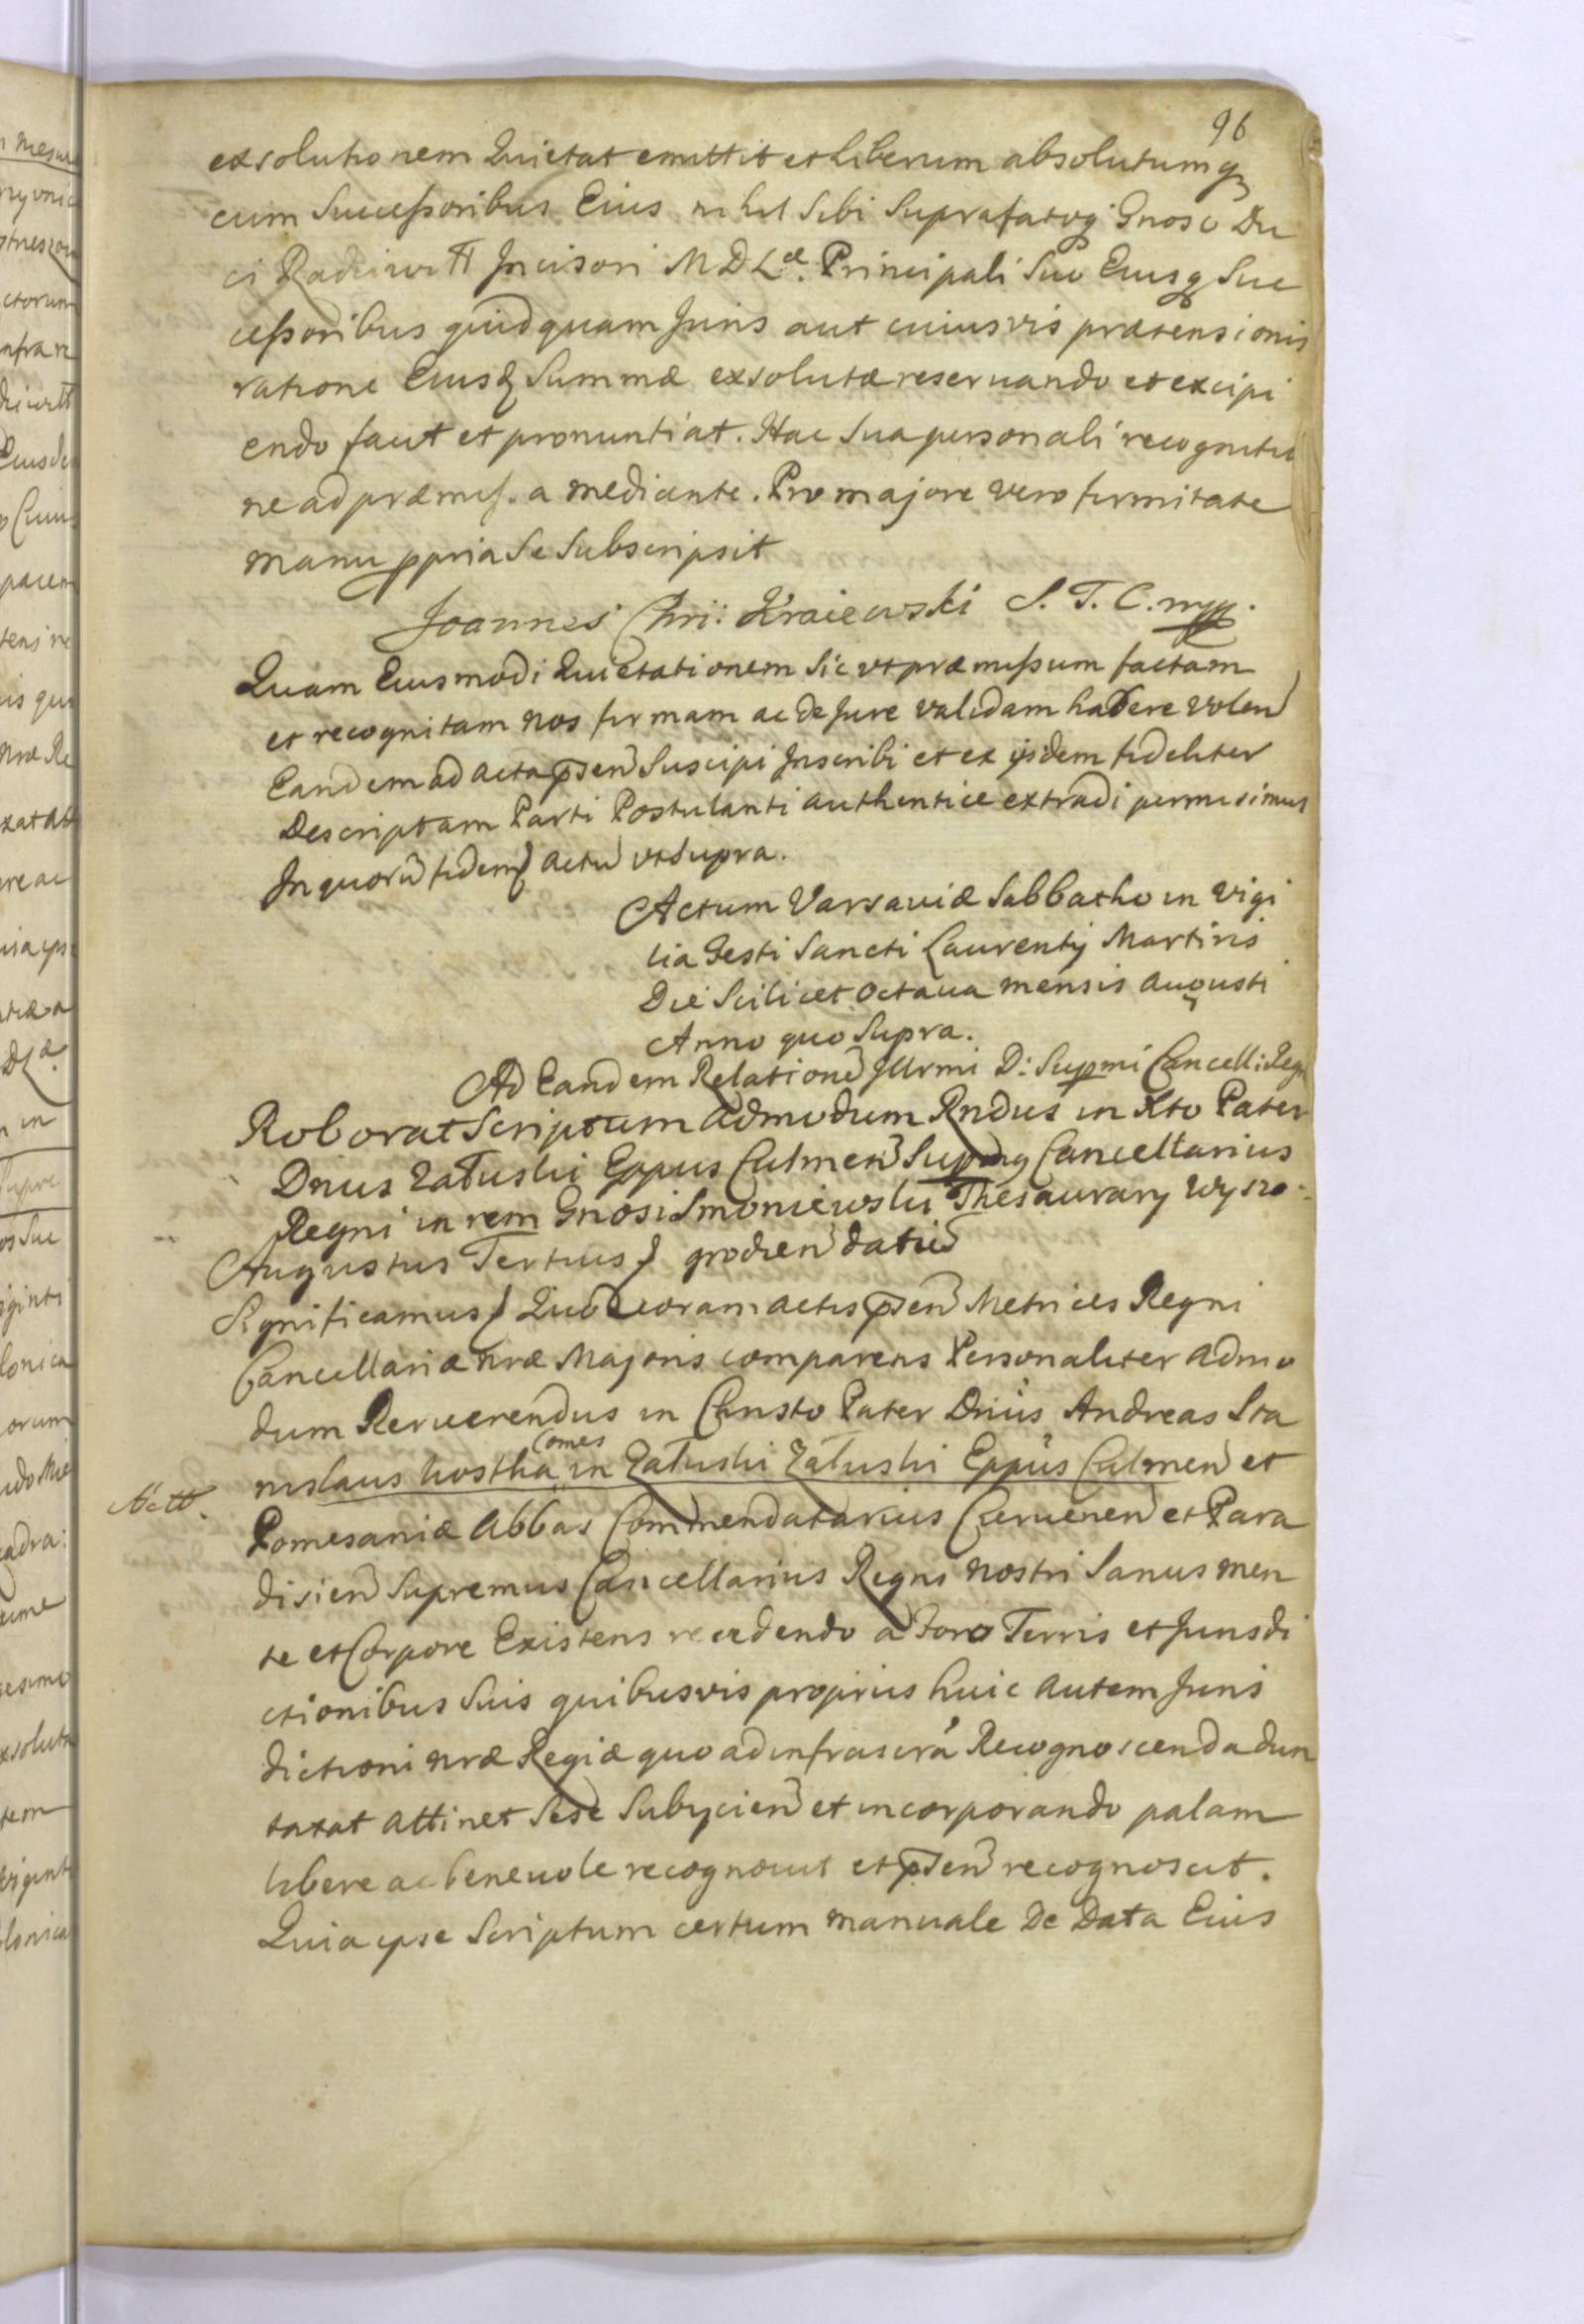 96
exsolutionem Quietat emittit et liberum absolutumq
cum Successoribus Eius nihil Sibi Suprafatoq Gnoso Du
ci Radziwiłł Incisori M D L. Principali Suo Eiusq Suc
cessoribus quidquam Juris aut cuiusvis prætensionis
ratione Eiusq Summæ exsolutæ reservando et excipi
endo facit et pronuntiat. Hac Sua personali recognitio
ne ad præmissa mediante. Pro majore vero firmitate
manu ppria Se Subscripsit
Joannes Chri: Kraiewski S. T. C. mpp.
Quam Eiusmodi Quietationem Sic vt præmissum factam
et recognitam nos firmam ac de Jure validam habere volen
Eandem ad acta psen Suscipi Inscribi et ex ijsdem fideliter
Descriptam Parti Postulanti authentice extradi permisimus
In quorũ fidem actũ vt Supra.
Actum Varsaviæ Sabbatho in vigi
lia Festi Sancti Laurentij Martiris
Die Scilicet octaua mensis augusti
Anno quo Supra.
Ad Eandem Relationẽ Illrmi D: Supmi Cancell: Regni
Roborat Scriptum admodum Rndus in Xto Pater
Dnus Załuski Eppus Culmen Supmq Cancellarius
Regni in rem Gnosi Smoniewski Thesaurarij Wyszo-
Augustus Tertius grodzen datũ
Significamus Quod coram actis psen Metrices Regni
Cancellariæ nræ Majoris comparens Personaliter admo
dum Reverendus in Christo Pater Dnus Andreas Sta
Comes
nislaus Kostka in Załuski Załuski Eppus Culmen et
Pomesaniæ Abbas Commendatarius Czervenen et Para
disien Supremus Cancellarius Regni nostri Sanus men
te et Corpore Existens recedendo a Foro Terris et Jurisdi
ctionibus Suis quibusvis proprijs huic autem Juris
dictioni nræ Regiæ quo ad infrascra Recognoscenda dun
taxat attinet Sese Subijcien et incorporando palam
libere ac benevole recognovit et psen recognoscit.
Quia ipse Scriptum certum manuale De Data Eius